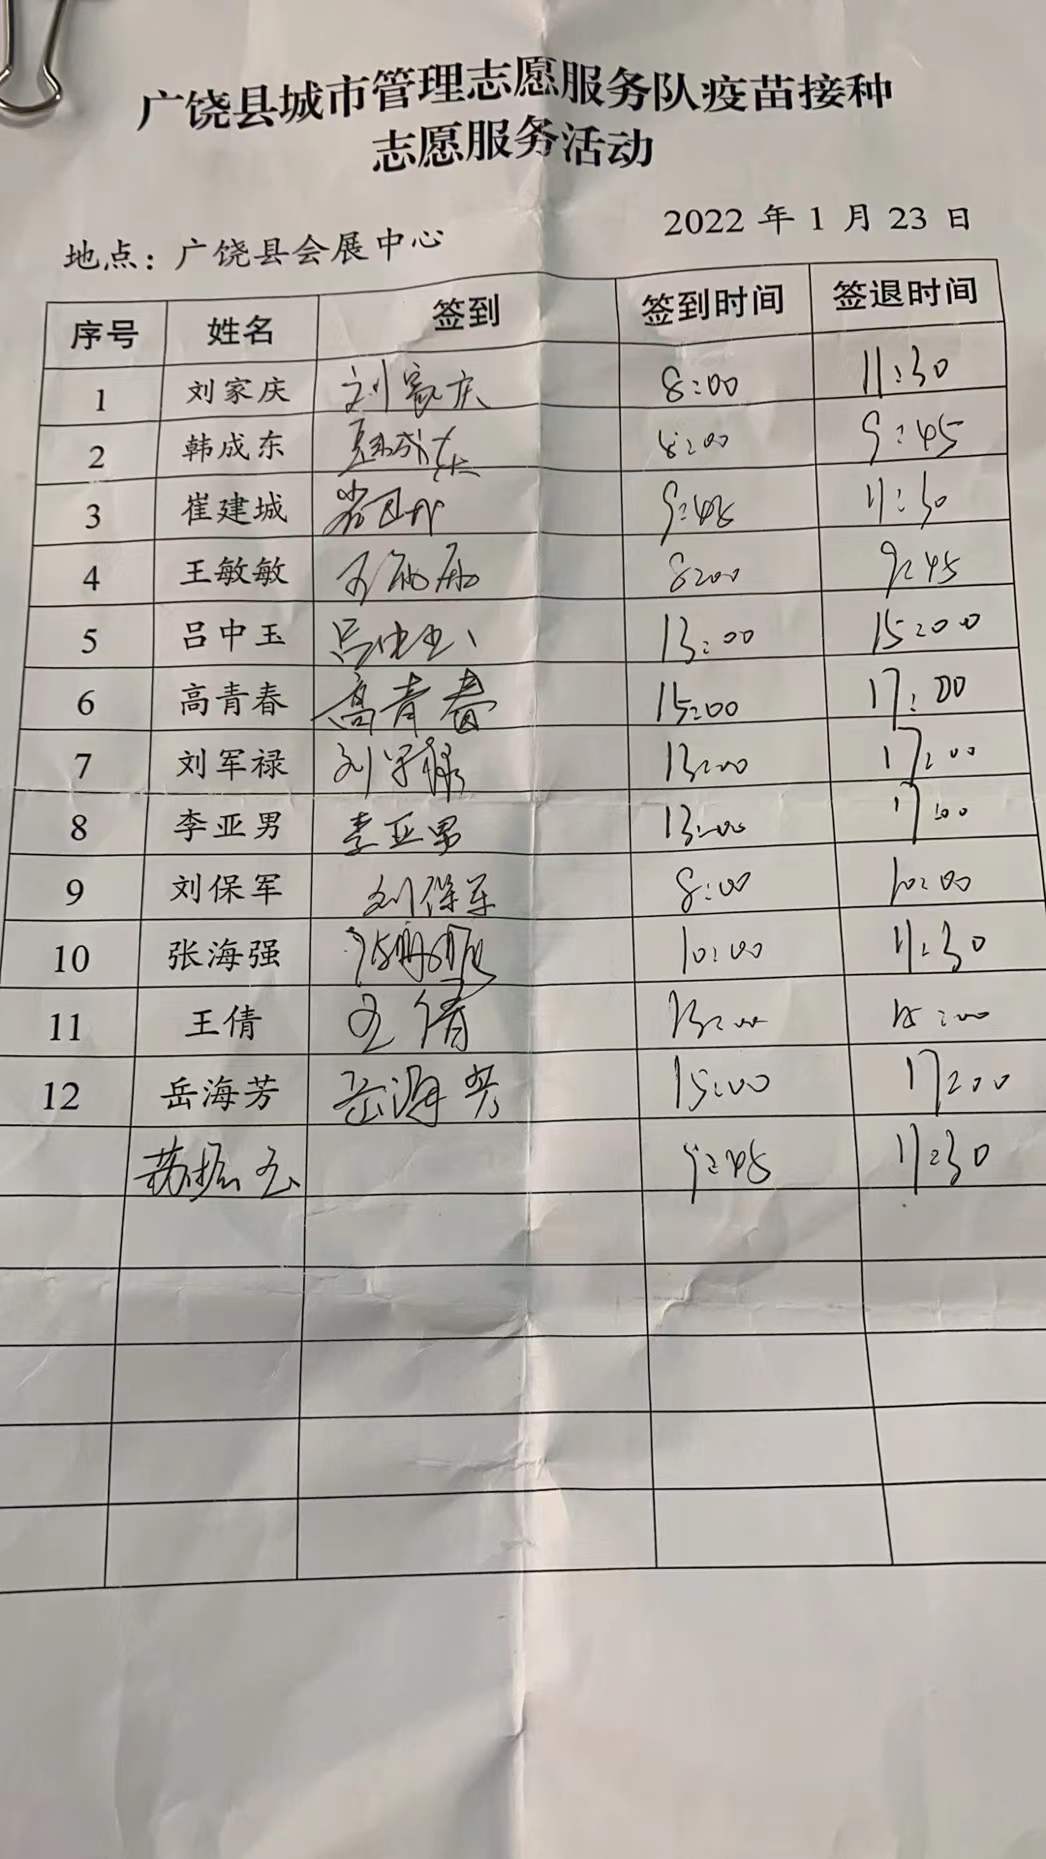 广饶县城市管理志愿服务队疫苗接种
志愿服务活动
地点：广饶县会展中心 2022 年 1 月 23 日
序号 姓名 签到 签到时间 签退时间
1 刘家庆 刘家庆 8:00 11:30
2 韩成东 韩成东 8:00 9:45
3 崔建城 9:45 11:30
4 王敏敏 王敏敏 8:00 9:45
5 吕中玉 吕中玉 13:00 15:00
6 高青春 高青春 15:00 17:00
7 刘军禄 刘军禄 13:00 17:00
8 李亚男 李亚男 13:00 17:00
9 刘保军 刘保军 8:00 10:00
10 张海强 张海强 10:00 11:30
11 王倩 王倩 13:00 15:00
12 岳海芳 岳海芳 15:00 17:00
9:45 11:30